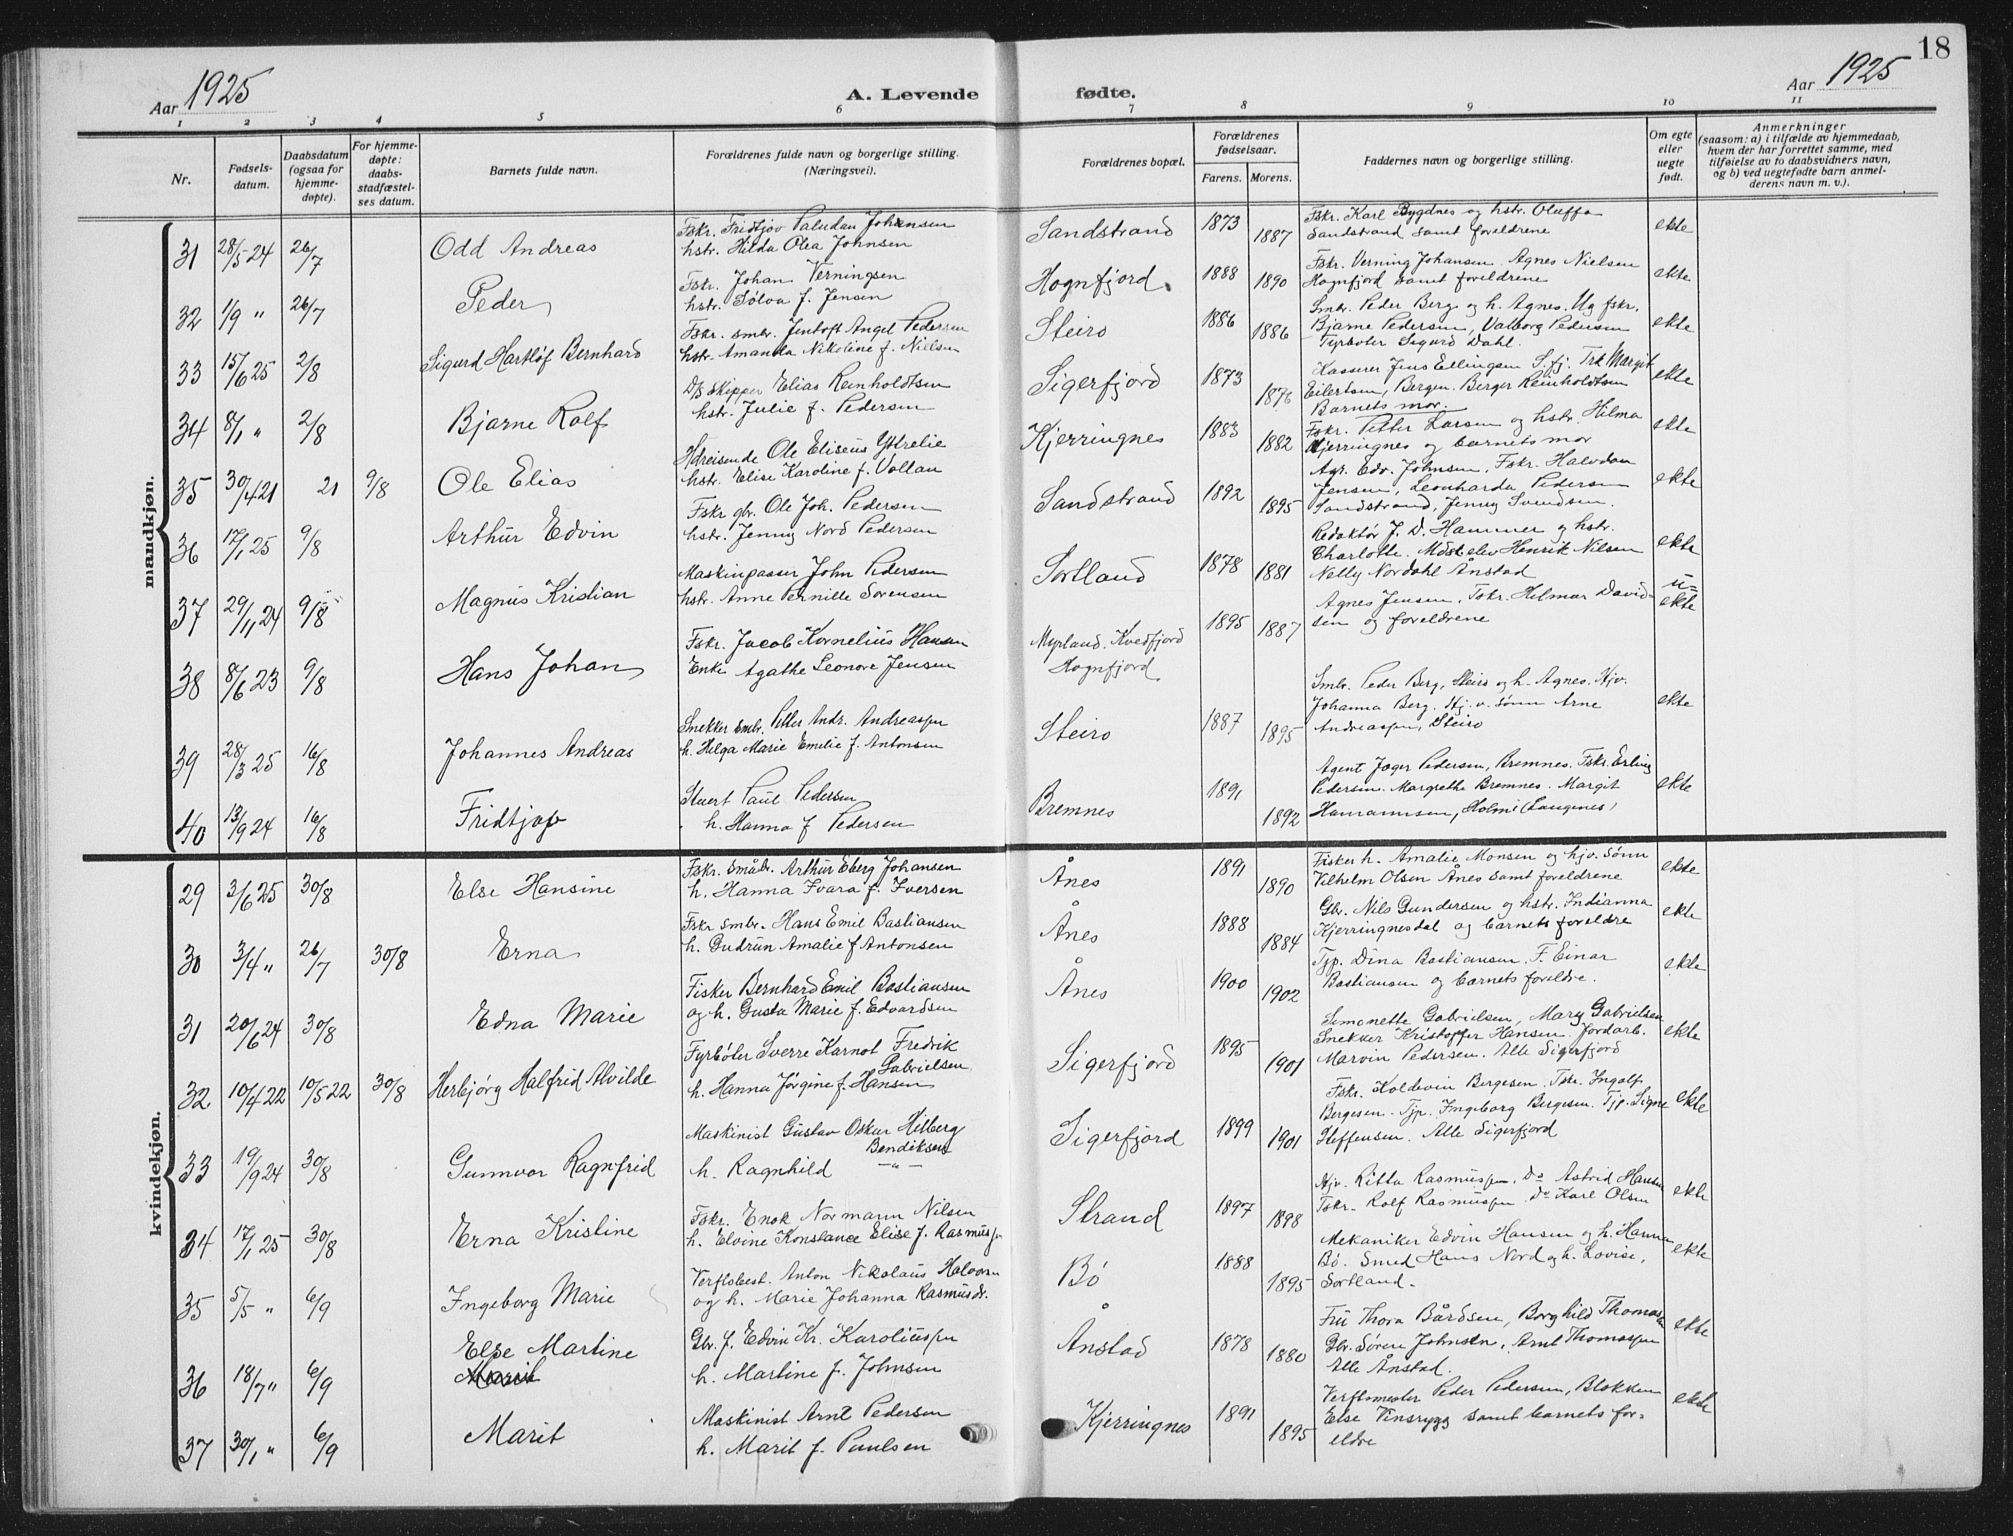 18
Aar 1925
A. Levende fødte.
Aar 1925
1 2 3 4 5 6 7 8 9 10 11
Nr.
Fødsels-
datum.
Daabsdatum
(ogsaa for
hjemme-
døpte).
For hjemme-
døpte:
daabs-
stadfæstel-
ses datum.
Barnets fulde navn.
Forældrenes fulde navn og borgerlige stilling.
(Næringsvei).
Forældrenes bopæl.
Forældrenes
fødselsaar.
Farens. Morens.
Faddernes navn og borgerlige stilling.
Om egte
eller
uegte
født.
Anmerkninger
(saasom: a) i tilfælde av hjemmedaab,
hvem der har forrettet samme, med
tilføielse av to daabsvidners navn,
og b) ved uegtefødte barn anmel-
derens navn m. v.).
mandkjøn.
31 28/5 24 26/7 Odd Andreas
Fskr. Fridtjov Paludan Johansen
hstr. Hilda Olea Johnsen
Sandstrand 1873 1887
Fskr. Karl Bygdnes og hstr. Oluffa
Sandstrand samt foreldrene
ekte
32 1/9 " 26/7 Peder
Fskr. Johan Verningsen
hstr. Sølva f. Jensen
Hognfjord. 1888 1890
Fskr. Verning Johansen. Agnes Nielsen
Hognfjord samt foreldrene
ekte
33 15/6 25 2/8 Sigurd Hartløf Bernhard
Fskr. smbr. Jentoft Angel Pedersen
hstr. Amanda Nikoline f. Nielsen
Steiro 1886 1886
Smbr. Peder Berg og h. Agnes. Ug fskr.
Bjarne Pedersen, Valborg Pedersen
Fyrbøter Sigurd Dahl.
ekte
34 8/1 " 2/8 Bjarne Rolf
D/S Skipper Elias Reinholdtsen
hstr. Julie f. Pedersen
Sigerfjord 1873 1876
Kasserer Jens Ellingsen S.fj. Frk Margit
Eilertsen, Bergen. Berger Reinholdtsen
Barnets mor.
ekte
35 30/4 21 21 9/8 Ole Elias
Hdreisende Ole Eliseus Yttrelie
hstr. Elise Karoline f. Vollan
Kjerringnes 1883 1882
Fskr. Petter Larsen og hstr. Hilma
Kjerringnes og barnets mor
ekte
36 17/1 25 9/8 Arthur Edvin
Fskr gbr. Ole Joh. Pedersen
hstr. Jenny Nord Pedersen
Sandstrand 1892 1895
Agr. Edv. Johnsen, Fskr. Halvdan
Jensen, Leonharda Pedersen
Sandstrand, Jenny Svendsen.
ekte
37 29/11 24 9/8 Magnus Kristian
Maskinpasser John Pedersen
hstr. Anne Pernille Sørensen
Sortland 1878 1881
Redaktør J. D. Hammer og hstr.
Charlotte. Henrik Nilsen
Nelly Nordahl Ånstad
ekte
38 8/6 23 9/8 Hans Johan
Fskr. Jacob Kornelius Hansen
Enke Agathe Leonore Jensen
Myrland. Kvedfjord
Hognfjord
1895 1887
Agnes Jensen, Fskr. Hilmar David-
sen og foreldrene
u-
ekte
39 28/3 25 16/8 Johannes Andreas
Snekker Smbr. Petter Andr. Andreassen
h. Helga Marie Emilie f. Antonsen
Steiro 1887 1895
Smbr. Peder Berg, Steiro og h. Agnes. Hjv.
Johanna Berg. Hj. v. sønn Arne
Andreassen, Steiro
ekte
40 13/9 24 16/8 Fridtjof
Stuert Paul Pedersen
h. Hanna f Pedersen
Bremnes 1891 1892
Agent Jæger Pedersen, Bremnes. Fskr. Erling
Pedersen. Margrethe Bremnes. Margit
Hansen, Holmi (Langenes)
ekte
kvindekjøn.
29 3/6 25 30/8 Else Hansine
Fskr. Småbr. Arthur Eberg Johansen
h. Hanna Ivara f. Iversen
Ånes 1891 1890
Fisker h. Amalie Monsen og hjv. sønn
Vilhelm Olsen Ånes samt foreldrene
ekte
30 3/4 " 26/7 30/8 Erna
Fskr smbr. Hans Emil Bastiansen
h. Gudrun Amalie f Antonsen
Ånes 1888 1884
Gbr. Nils Gundersen og hstr. Indianna
Kjerringnesdal og barnets foreldre
ekte
31 20/6 24 30/8 Edna Marie
Fisker Bernhard Emil Bastiansen
og h. Gusta Marie f. Edvardsen
Ånes 1900 1902
Tjp. Dina Bastiansen. F. Einar
Bastiansen og barnets foreldre.
ekte
32 10/4 22 10/5 22 30/8 Herbjørg Malfrid Alvilde
Fyrbøter Sverre Karnot Fredrik
Gabrielsen
h. Hanna Jørgine f. Hansen
Sigerfjord 1895 1901
Simonette Gabrielsen, Mary Gabrielsen
Snekker Kristoffer Hansen. Jordarb.
Marvin Pedersen. Alle Sigerfjord
ekte
33 19/9 24 30/8 Gunnvor Ragnfrid
Maskinist Gustav Oskar Hilberg
Bendiksen
h. Ragnhild — " —
Sigerfjord 1899 1901
Fskr. Koldevin Bergesen. Fskr. Ingolf
Bergesen. Tjp. Ingeborg Bergesen. Tjp. Signe
Steffensen. Alle Sigerfjord
ekte
34 17/1 25 30/8 Erna Kristine
Fskr. Enok Normann Nilsen
h. Elvine Konstance Elise f. Rasmuss.
Strand 1897 1898
Hjv. Ritta Rasmussen. Do Astrid Hansen
Fskr. Rolf Rasmussen Do Karl Olsen
ekte
35 5/5 " 6/9 Ingeborg Marie
Verftsbest. Anton Nikolaus Halvorsen
og h. Marie Johanna Rasmusdr.
Bø 1888 1895
Mekaniker Edvin Hansen og h. Hanna
Bø. Smed Hans Nord og h. Lovise,
Sortland.
ekte
36 18/7 " 6/9 Else Martine
Marit
Gbr. f. Edvin Kr. Karoliussen
h. Martine f. Johnsen
Ånstad 1878 1880
Fru Thora Bårdsen, Borghild Thomas
Gbr. Søren Johnsen, Arnt Thomassen
Alle Ånstad.
ekte
37 30/1 " 6/9 Marit
Maskinist Arnt Pedersen
h. Marit f. Paulsen
Kjerringnes 1891 1895
Verftsmester Peder Pedersen, Blokken
Else Vinsrygg samt barnets for-
eldre
ekte